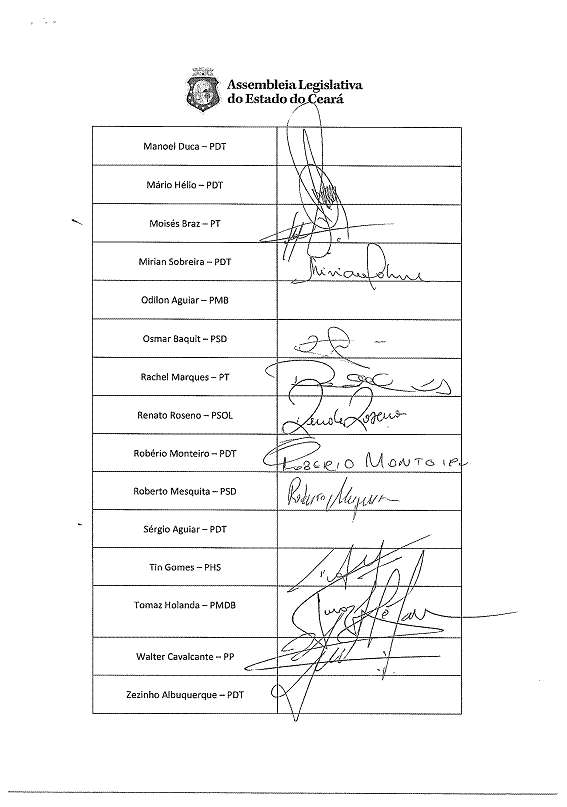 Assembleia Legislativa
do Estado do Ceará
Manoel Duca – PDT
Mário Hélio – PDT
Moisés Braz – PT
Mirian Sobreira – PDT
Odilon Aguiar – PMB
Osmar Baquit – PSD
Rachel Marques – PT
Renato Roseno – PSOL
Renato Roseno
Robério Monteiro – PDT
Roberto Mesquita – PSD
Sérgio Aguiar – PDT
Tin Gomes – PHS
Tomaz Holanda – PMDB
Walter Cavalcante – PP
Zezinho Albuquerque – PDT